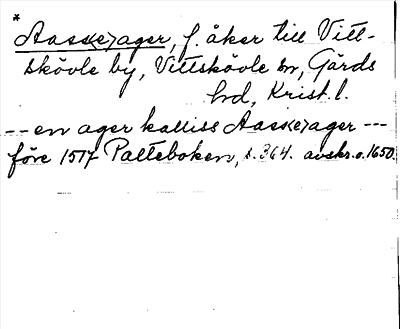 *
Aas<e>ager, f. åker till Vitt-
skövle by, Vittskövle sn, Gärds
hd, Krist. l.
-- en ager kalliss Aas<e>ager ---
före 1517 Palteboken, s. 364. avskr. o. 1650.